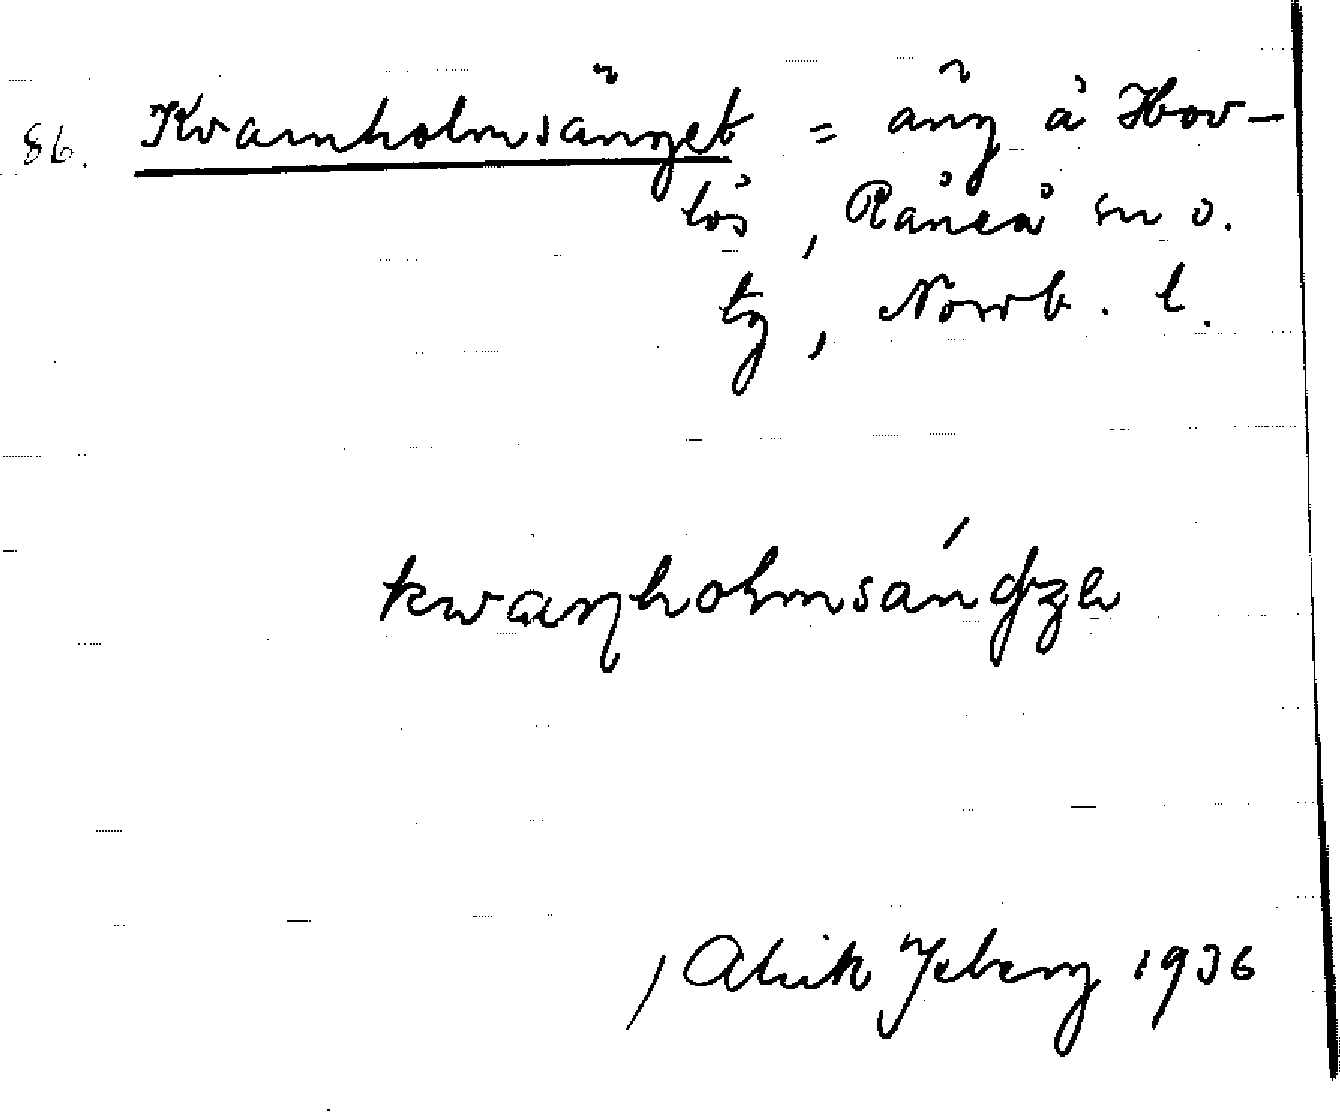 86. Kvarnholmsänget = äng å Hov-
lös, Råneå sn o.
tg, Norrb. l.
kwaɳholmsäŋʤe
Alrik Yberg 1936